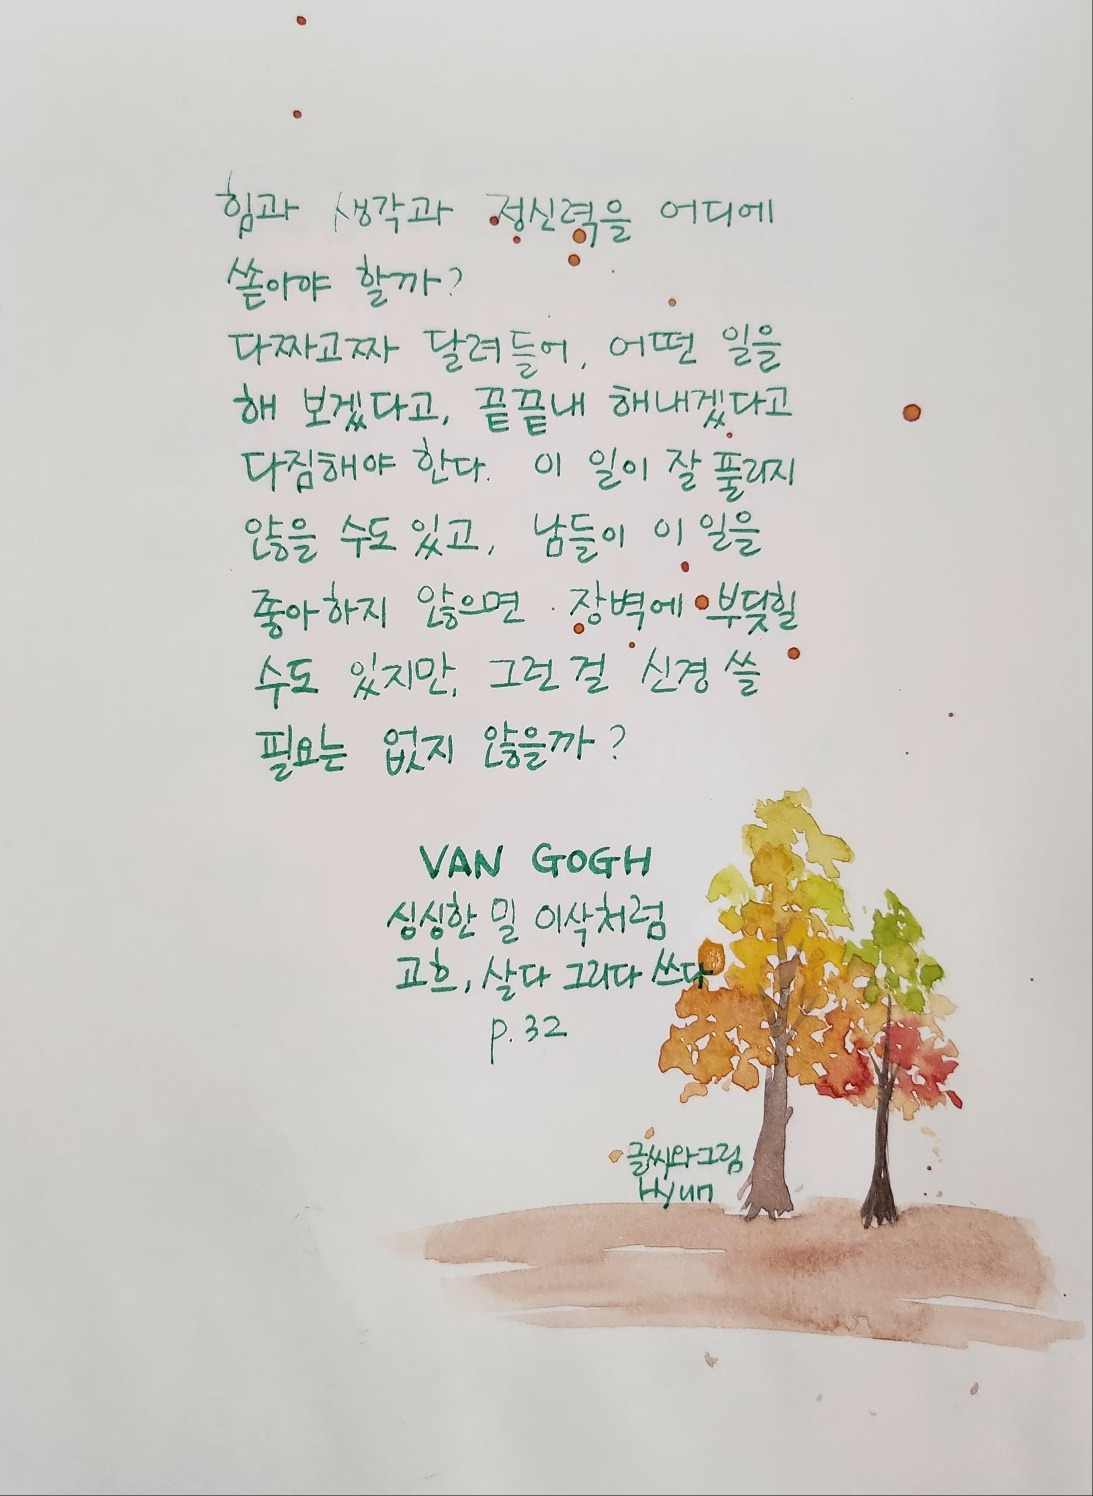 힘과 생각과 정신력을 어디에
쏟아야 할까?
다짜고짜 달려들어, 어떤 일을
해 보겠다고, 끝끝내 해내겠다고
다짐해야 한다. 이 일이 잘 풀리지
않을 수도 있고, 남들이 이 일을
좋아하지 않으면 장벽에 부딪힐
수도 있지만, 그런 걸 신경 쓸
필요는 없지 않을까?
VAN GOGH
싱싱한 밀 이삭처럼
고흐, 살다 그리다 쓰다
p. 32
글씨와 그림
Hyun